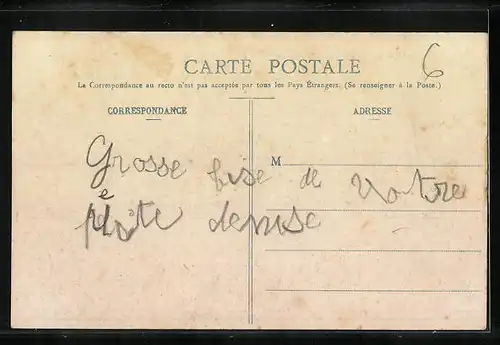 6
CARTE POSTALE
La Correspondance au recto n'est pas acceptée par tous les Pays Étrangers. (Se renseigner à la Poste.)
CORRESPONDANCE
ADRESSE
M
Grosse bise de Voutre
denise